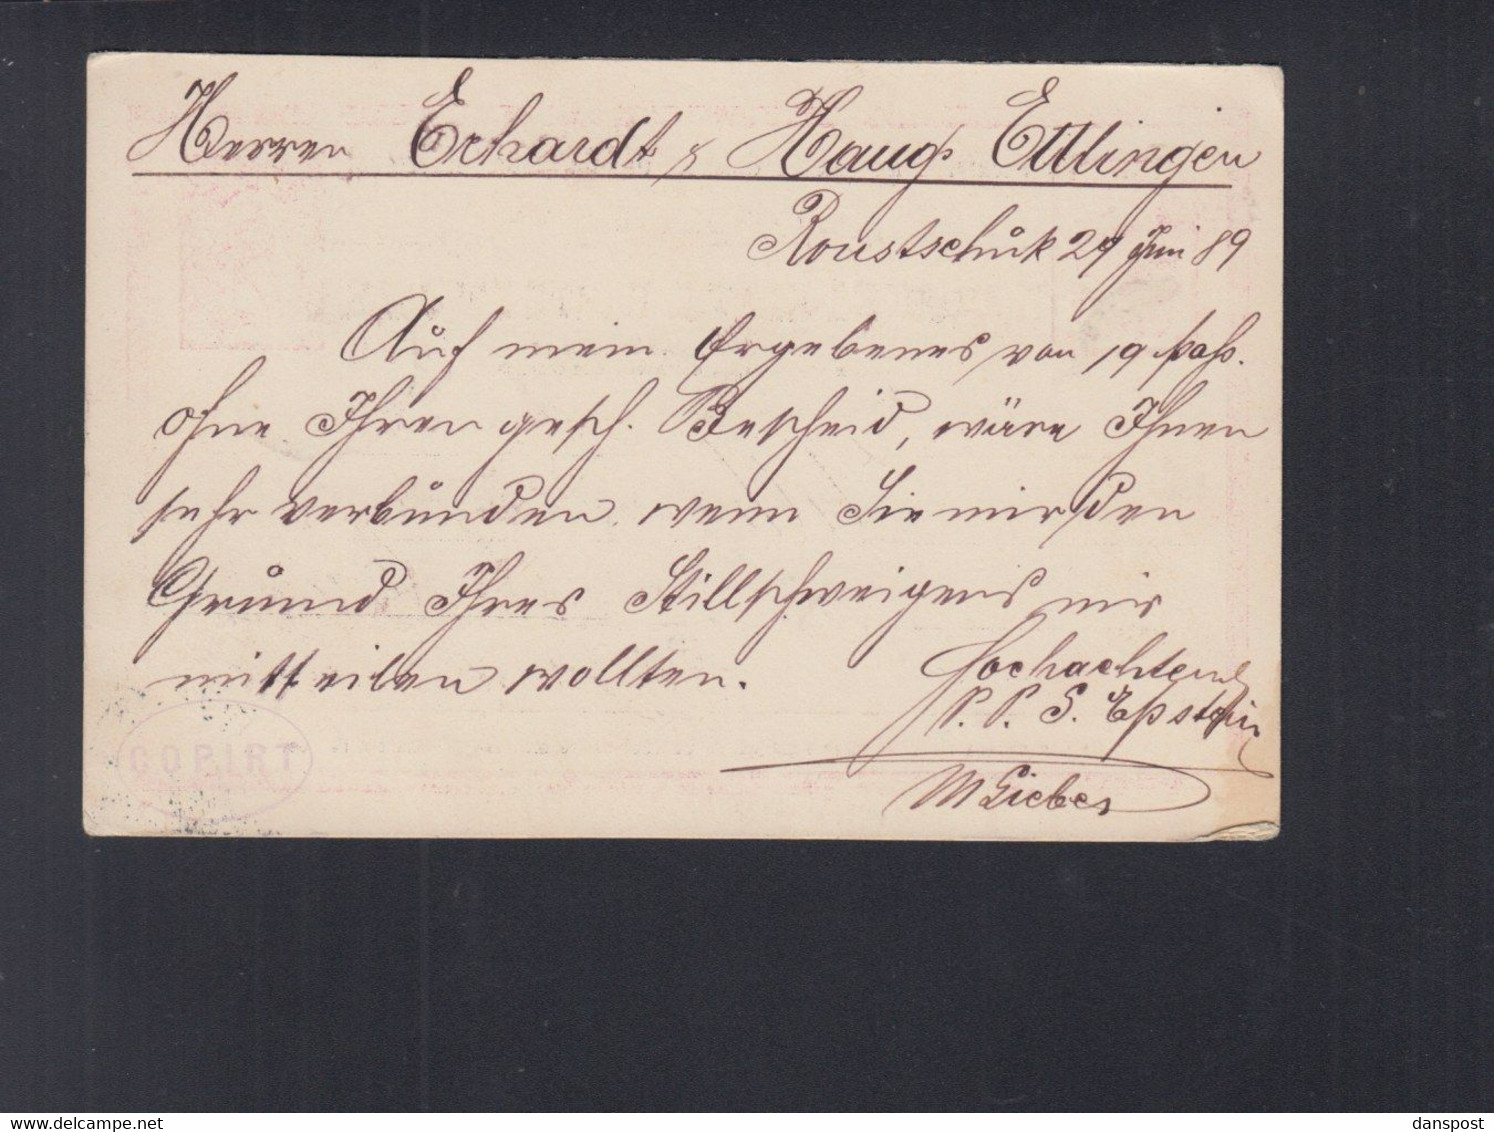 Herren Erhardt & Haug Ettlingen
Roustschuk 29 Juni 89
Auf mein Ergebenes von 19 pass.
ohne Ihren gesch. Bescheid, wäre Ihnen
sehr verbunden wenn Sie mir den
Grund Ihres Stillschweigens mir
mitteilen wollten.
Hochachtend
P. P. S. Epstein
COPIRT
danspost